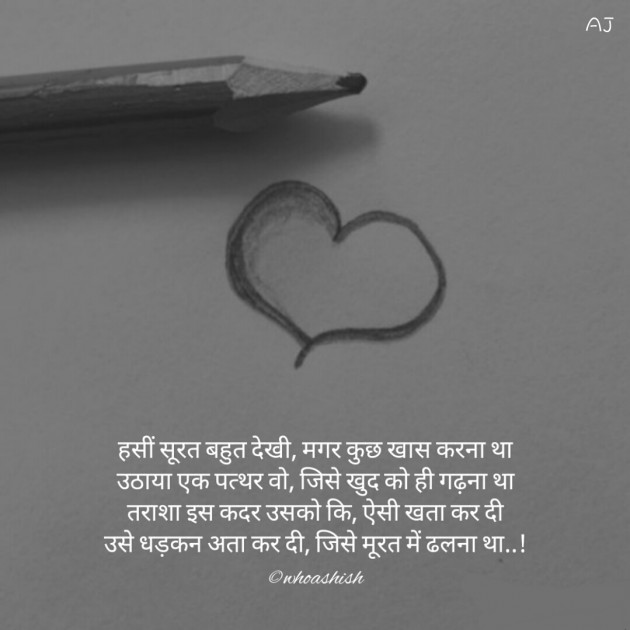 AJ
हसीं सूरत बहुत देखी, मगर कुछ खास करना था
उठाया एक पत्थर वो, जिसे खुद को ही गढ़ना था
तराशा इस कदर उसको कि, ऐसी खता कर दी
उसे धड़कन अता कर दी, जिसे मूरत में ढलना था..!
©whoashish